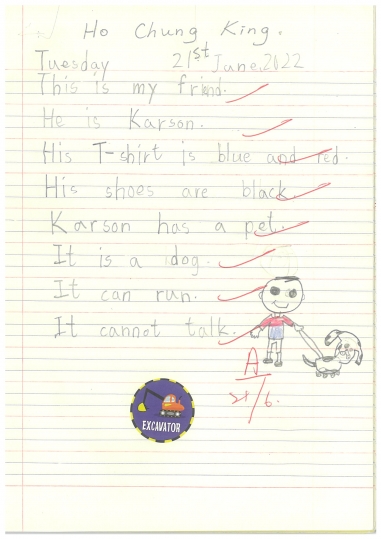 Ho Chung King.
Tuesday 21st June.2022
This is my friend.
He is Karson.
His T-shirt is blue and red.
His shoes are black.
Karson has a pet.
It is a dog.
It can run.
It cannot talk.
A
21/6.
EXCAVATOR